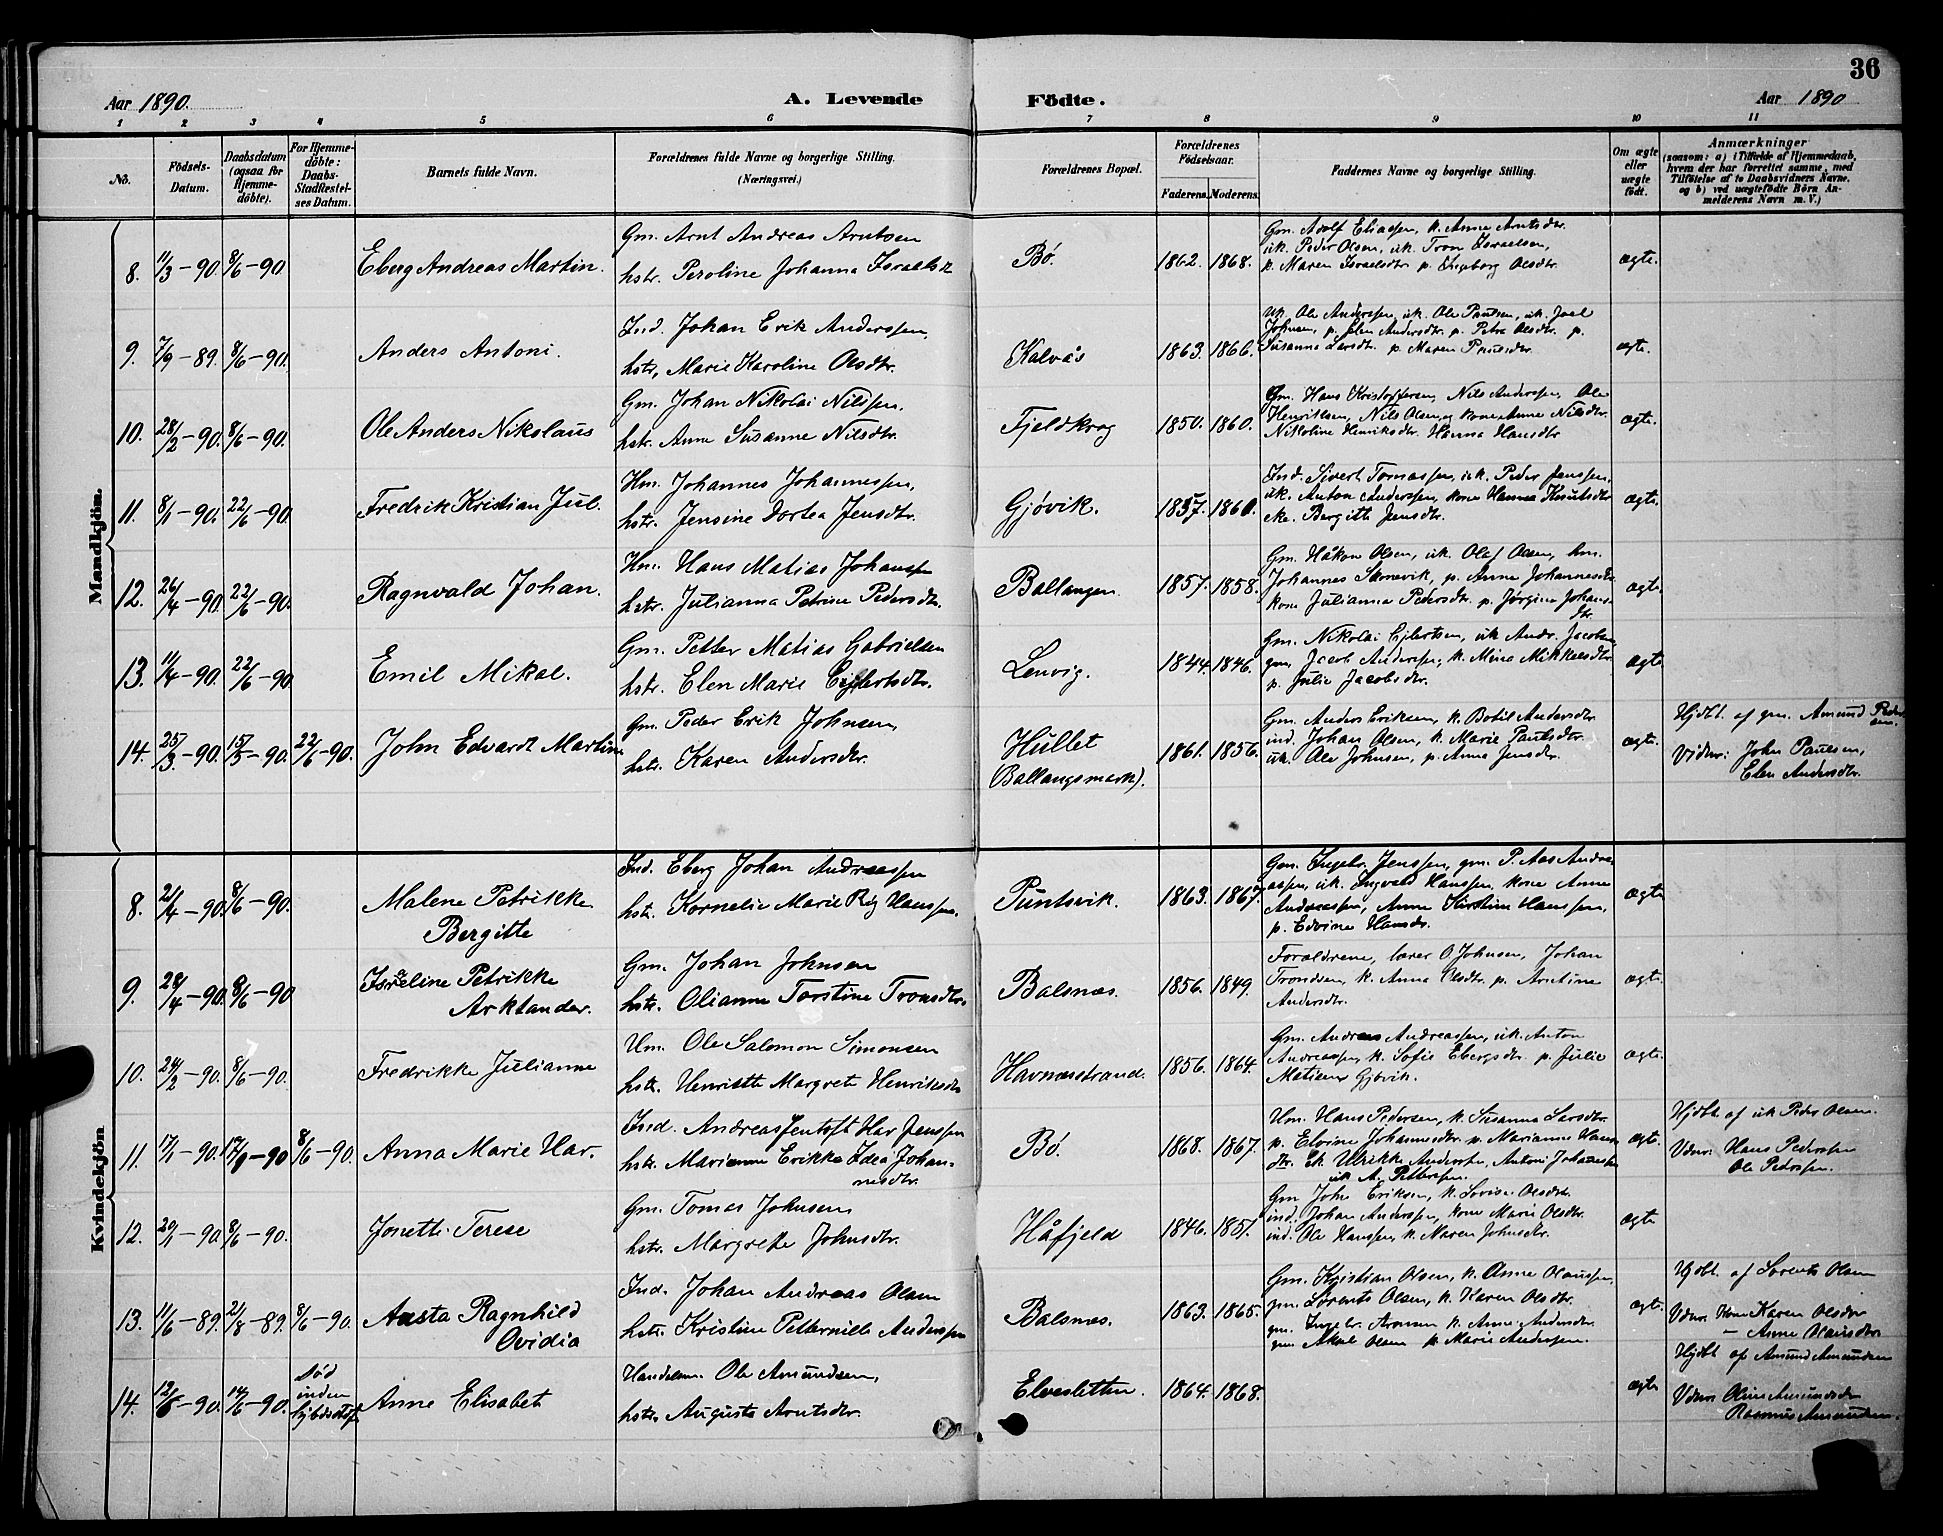 36
Aar 1890.
A. Levende Födte.
Aar 1890
1 2 3 4 5 6 7 8 9 10 11
No.
Födsels-
Datum.
Daabsdatum
(ogsaa för
Hjemme-
döbte).
For Hjemme-
döbte:
Daabs-
Stadfæstel-
ses Datum.
Barnets fulde Navn.
Forældrenes fulde Navne og borgerlige Stilling.
(Næringsvei.)
Forældrenes Bopæl.
Forældrenes
Födselsaar.
Faderens. Moderens.
Faddernes Navne og borgerlige Stilling.
Om ægte
eller
uægte
født.
Anmærkninger
(saasom: a) i Tilfælde af Hjemmedaab,
hvem der har forrettet samme, med
Tilföielse af to Daabsvidners Navne,
og b) ved uægtefödte Börn An-
melderens Navn m. V.)
Mandkjön.
8. 11/3-90. 8/6-90
Eberg Andreas Martin.
Gm. Arnt Andreas Arntsen
hstr. Peroline Johanna Israelsd
Bø.
1862. 1868.
Gm. Adolf Eliassen, k. Anne Arntsdtr.
uk. Peder Olsen, uk. Tron Israelsen,
p. Maren Israelsdtr. p. Ingeborg Olsdtr.
ægte.
9. 7/9-89. 8/6-90.
Anders Antoni.
Ind. Johan Erik Anderssen,
hstr, Marie Karoline Olsdtr.
Kalvås
1863. 1866.
Uk. Ole Anderssen, uk. Ole Paulsen, uk. Joel
Johnsen, p. Elen Andersdtr. p. Petra Olsdtr. p.
Susanna Larsdtr. p. Maren Paulsdtr.
ægte.
10. 28/2-90. 8/6-90.
Ole Anders Nikolaus
Gm. Johan Nikolai Nilssen,
hstr. Anne Susanne Nilsdtr.
Fjeldkrog
1850. 1860.
Gm. Hans Kristoffersen, Nils Anderssen, Ole
Henriksen, Nils Olsen og kone Anne Nilsdtr.
Nikoline Henriksdtr. Hanna Hansdtr
ægte.
11. 8/1-90. 22/6-90.
Fredrik Kristian Jul.
Hm. Johannes Johannessen,
hstr. Jensine Dortea Jensdtr.
Gjøvik.
1857. 1860.
Ind. Sivert Tomassen, uk. Peder Jenssen,
uk. Anton Anderssen, kone Hanna Knutsdtr
Bergitte Jensdtr.
ægte.
12. 26/4-90. 22/6-90.
Ragnvald Johan.
Hm. Hans Matias Johanssen
hstr. Julianna Petrine Pedersdtr.
Ballangen
1857. 1858.
Gm. Håkon Olsen, uk. Olaf Olsen, hm.
Johannes Skonevik, p. Anne Johannesdtr
kone Julianna Pedersdtr. p. Jørgine Johans-
dtr.
ægte.
13. 11/4-90. 22/6-90.
Emil Mikal.
Gm. Petter Matias Gabrielsen
hstr. Elen Marie Ejlertsdtr.
Lenvig.
1844. 1846.
Gm. Nikolai Ejlertsen, uk Andr. Jacobsen
gm. Jacob Anderssen, k. Mina Mikkelsdtr.
p. Julie Jacobsdtr.
ægte
14. 25/3-90. 15/5-90. 22/6-90.
John Edvardt Martin
Gm. Peder Erik Johnsen,
hstr. Karen Andersdtr.
Hullet
Ballangsmark).
1861. 1856.
Gm. Anders Eriksen, k. Botil Andersdtr.
ind. Johan Olsen, k. Marie Paulsdtr.
uk. Ole Johnsen, p. Anna Jensdtr.
ægte.
Hjdbt. af gm. Amund Peder-
sen.
Vidner: John Paulsen,
Elen Andersdtr.
Kvindekjön
8. 21/4-90. 8/6-90.
Malene Petrikke
Bergitte
Ind. Eberg Johan Andreassen
hstr. Kornelie Marie Reg Hanssen.
Puntsvik.
1863. 1867.
Gm. Ingebr. Jenssen, gm. P. Aas Andre-
assen, uk. Ingvald Hanssen, kone Anne
Andreassen, Anne Kirstine Hanssen,
p. Edvine Hansdtr.
ægte
9. 28/4-90. 8/6-90
Isreline Petrikke
Arktander.
Gm. Johan Johnsen
hstr. Olianna Torstine Tronsdtr.
Balsnæs.
1856. 1849.
Forældrene, lærer O Johnsen, Johan
Trondsen, k. Anna Olsdtr. p. Arntine
Andersdtr.
ægte.
10. 24/2-90. 8/6-90.
Fredrikke Julianne
Um. Ole Salomon Simonsen
hstr. Henriette Margrete Henriksdtr
Havnæsstrand.
1856. 1864.
Gm. Andreas Andreassen, uk. Anton
Andreassen, k. Sofie Ebergsdtr. p. Julie
Matisen Gjövik.
ægte.
11. 17/1-90. 17/1-90 8/6-90.
Anna Marie Har.
Ind. Andreas Jentoft Har Jenssen
hstr. Marianne Erikke Idea Johan-
nesdtr.
Bø.
1868. 1867.
Um. Hans Pedersen, k. Susanna Larsdtr.
p. Elvine Johannesdtr. p. Marianne Hans-
dtr. Ek. Ulrikke Anderssen, Antoni Johannessen
uk A. Pettersen.
ægte.
Hjdbt. af uk Peder Olsen.
Vdnr. Hans Pederssen
Ole Pederssen.
12. 20/1-90. 8/6-90.
Jonette Terese
Gm. Tomas Johnsen
hstr. Margrete Johnsdtr.
Håfjeld
1846. 1851.
Gm John Eriksen, k. Lovise Olsdtr.
ind. Johan Anderssen, kone Marie Olsdtr.
ind. Ole Hanssen, k. Maren Johnsdtr.
ægte
13. 11/6-89. 21/8-89. 8/6-90.
Aasta Ragnhild
Ovidia
Ind. Johan Andreas Olsen
hstr. Kristine Petternille Anderssen
Balsnæs.
1863. 1865.
Gm. Kristian Olsen, k. Anne Olaussen,
gm. Lorents Olsen, k. Karen Olsdtr.
gm. Ingebr. Aronsen k. Anne Andersdtr.
gm Aksel Olsen p. Marie Andersen.
ægte.
Hjdbt. af Lorents Olsen
Vdnr. Kone Karen Olsdtr
— Anne Olausdtr
14. 12/6-90. 14/6-90.
Død
inden
Anne Elisabet
Handelsm. Ole Amundsen,
hstr. Augusta Arntsdtr.
Elvesletten.
1864. 1868.
ægte
Hjdbt af Amund Amundsen
Vdnr. Oline Amundsdtr
Rasmus Amundsen.